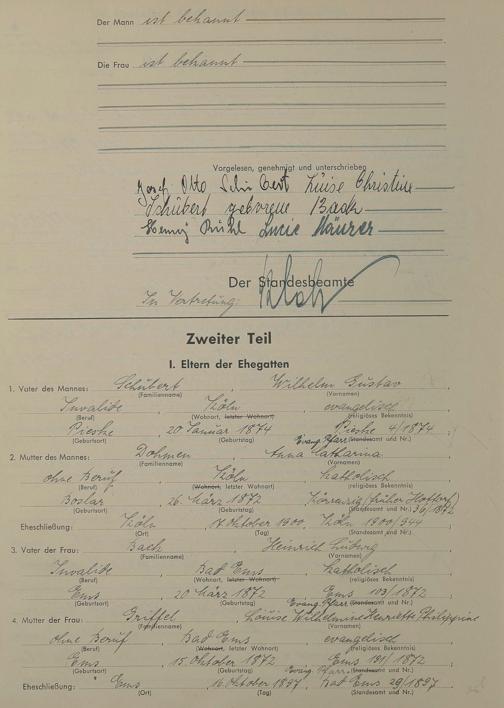 Der Mann ist bekannt
Die Frau ist bekannt
Vorgelesen, genehmigt und unterschrieben
Josef Otto Schubert Luise Christine
Schubert geborene Bach
Henny Rühl Lucie Maurer
Der Standesbeamte
In Vertretung:
Zweiter Teil
I. Eltern der Ehegatten
1. Vater des Mannes: Schubert, Wilhelm Gustav,
(Familienname) (Vornamen)
Invalide, Köln, evangelisch
(Beruf) (Wohnort, letzter Wohnort) (religiöses Bekenntnis)
Pieske 20 Januar 1874 Pieske 4/1874
(Geburtsort) (Geburtstag) Evang. Pfarr (Standesamt und Nr.)
2. Mutter des Mannes: Dohmen, Anna Catharina
(Familienname) (Vornamen)
ohne Beruf, Köln, katholisch
(Beruf) (Wohnort, letzter Wohnort) (religiöses Bekenntnis)
Boslar, 26. März 1872 (früher Hottorf) 36/1872
(Geburtsort) (Geburtstag) (Standesamt und Nr.)
Eheschließung: Köln Oktober 1900, Köln 1900/344
(Ort) (Tag) (Standesamt und Nr.)
3. Vater der Frau: Bach, Heinrich
(Familienname) (Vornamen)
Invalide, Bad Ems, katholisch
(Beruf) (Wohnort, letzter Wohnort) (religiöses Bekenntnis)
Ems 20 März 1872 Ems 103/1872
(Geburtsort) (Geburtstag) Evang. Pfarr (Standesamt und Nr.)
4. Mutter der Frau: Griffel, Louise Wilhelmine Henriette Philippine
(Familienname) (Vornamen)
ohne Beruf, Bad Ems, evangelisch
(Beruf) (Wohnort, letzter Wohnort) (religiöses Bekenntnis)
Ems 15. Oktober 1872 Ems 191/1872
(Geburtsort) (Geburtstag) Evang. Pfarr (Standesamt und Nr.)
Eheschließung: Ems, 16. Oktober 1897 Bad Ems 29/1897
(Ort) (Tag) (Standesamt und Nr.)